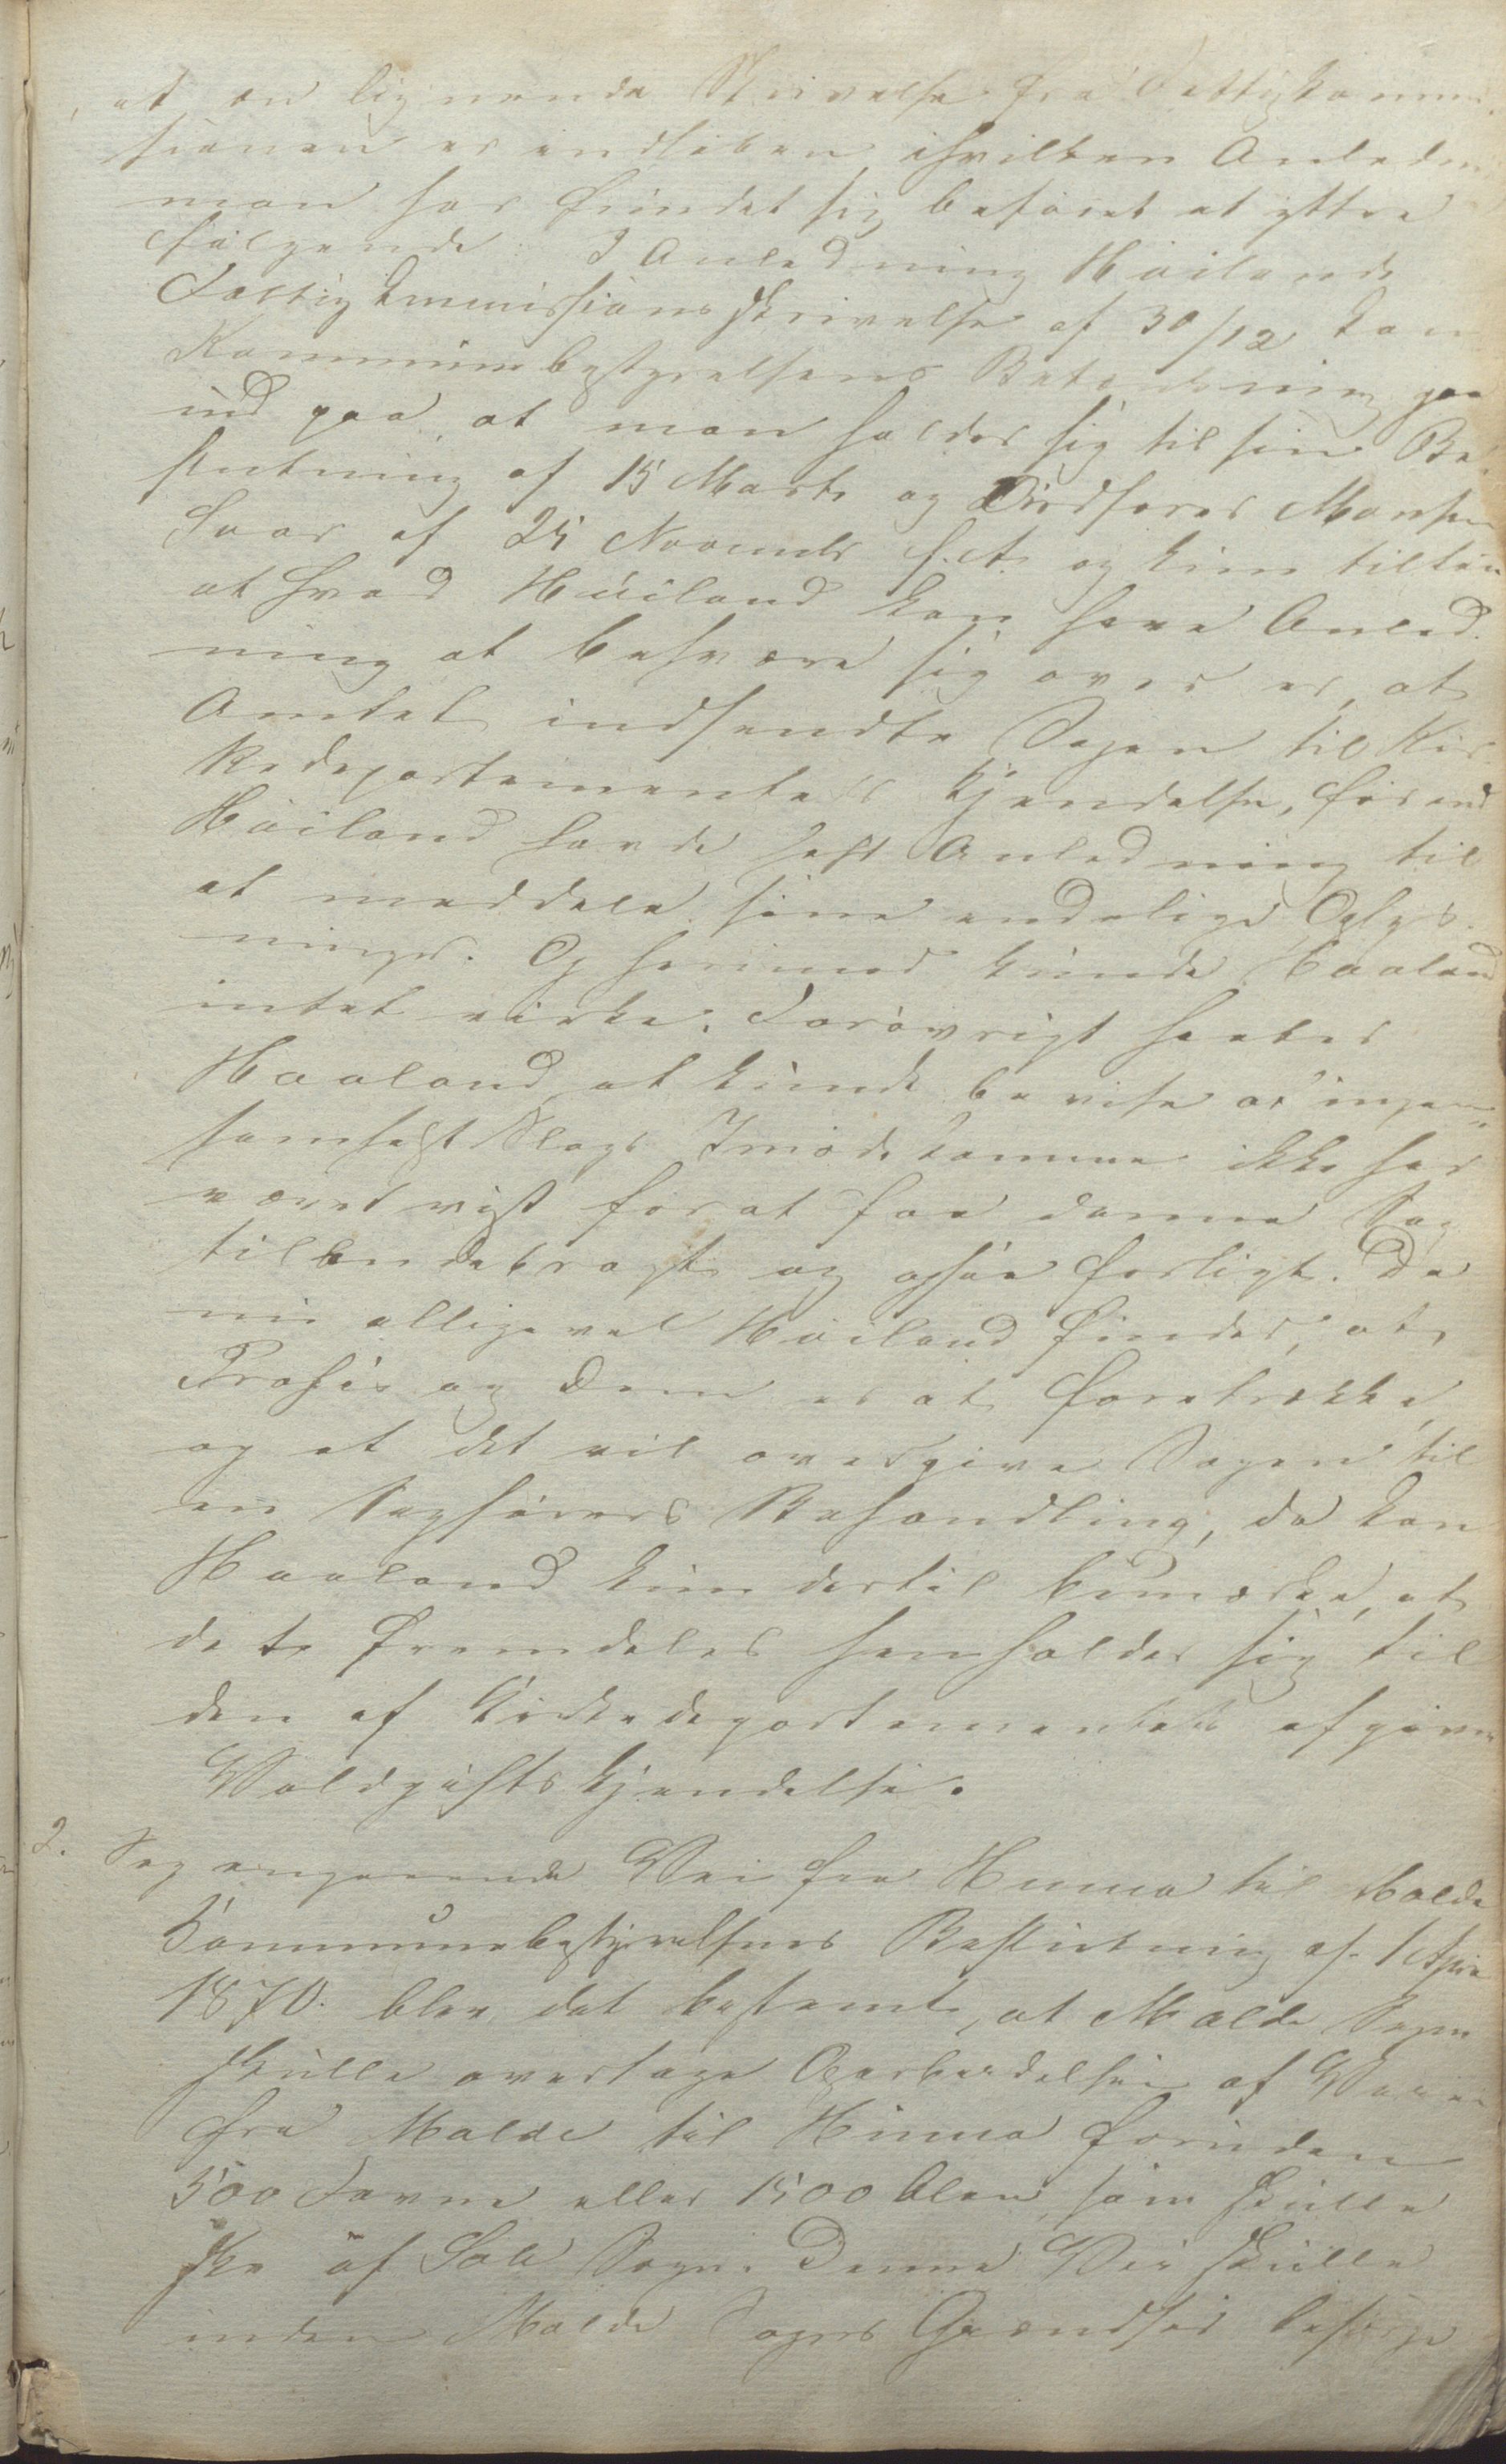 at en lignende Skrivelse fra Fattigkommis
sionen er indløben, ihvilken Anledn
man har fundet sig beføiet at yttre
følgende: I Anledning Høilands
Fattigkommissions Skrivelse af 30/12 kan
Kommunebestyrelsens Betænkning gaa
ud paa, at man holder sig til sin Be
slutning af 15 Marts og Ordfører Monsens
Svar af 25 Novembr f. A. og kun tilføie
at hvad Høiland kan have Anled
ning at besvære sig over er, at
Amtet indsendte Sagen til Kir
kedepartementets Kjendelse, førend
Høiland havde haft Anledning til
at meddele sine endelige Oplys
ninger. Og herimod kunde Haaland
intet virke. Forøvrigt haaber
Haaland at kunde bevise at ingen
somhelst Slags Imødekomme ikke har
været vist forat faa denne Sag
tilendebragt og opgive forligt. Da
nu alligevel Høiland finder, at
Proses og Dom er at foretrække,
og at det vil overgive Sagen til
en Sagførers Behandling, da kan
Haaland kun dertil bemærke, at
det fremdeles henholder sig til
den af Kirkedepartementet afgivne
Voldgiftskjendelse.
2. Sag angaaende Vei fra Hinna til Malde
Kommunebestyrelsens Beslutning af 1 April
1870. blev det bestemt, at Malde Sogn
skulle overtage Oparbeidelsen af Veien
fra Malde til Hinna foruden
500 Favne eller 1500 Alen, som skulle
ske af Sole Sogn. Denne Vei skulle
inden Malde Sogns Grændser besørge